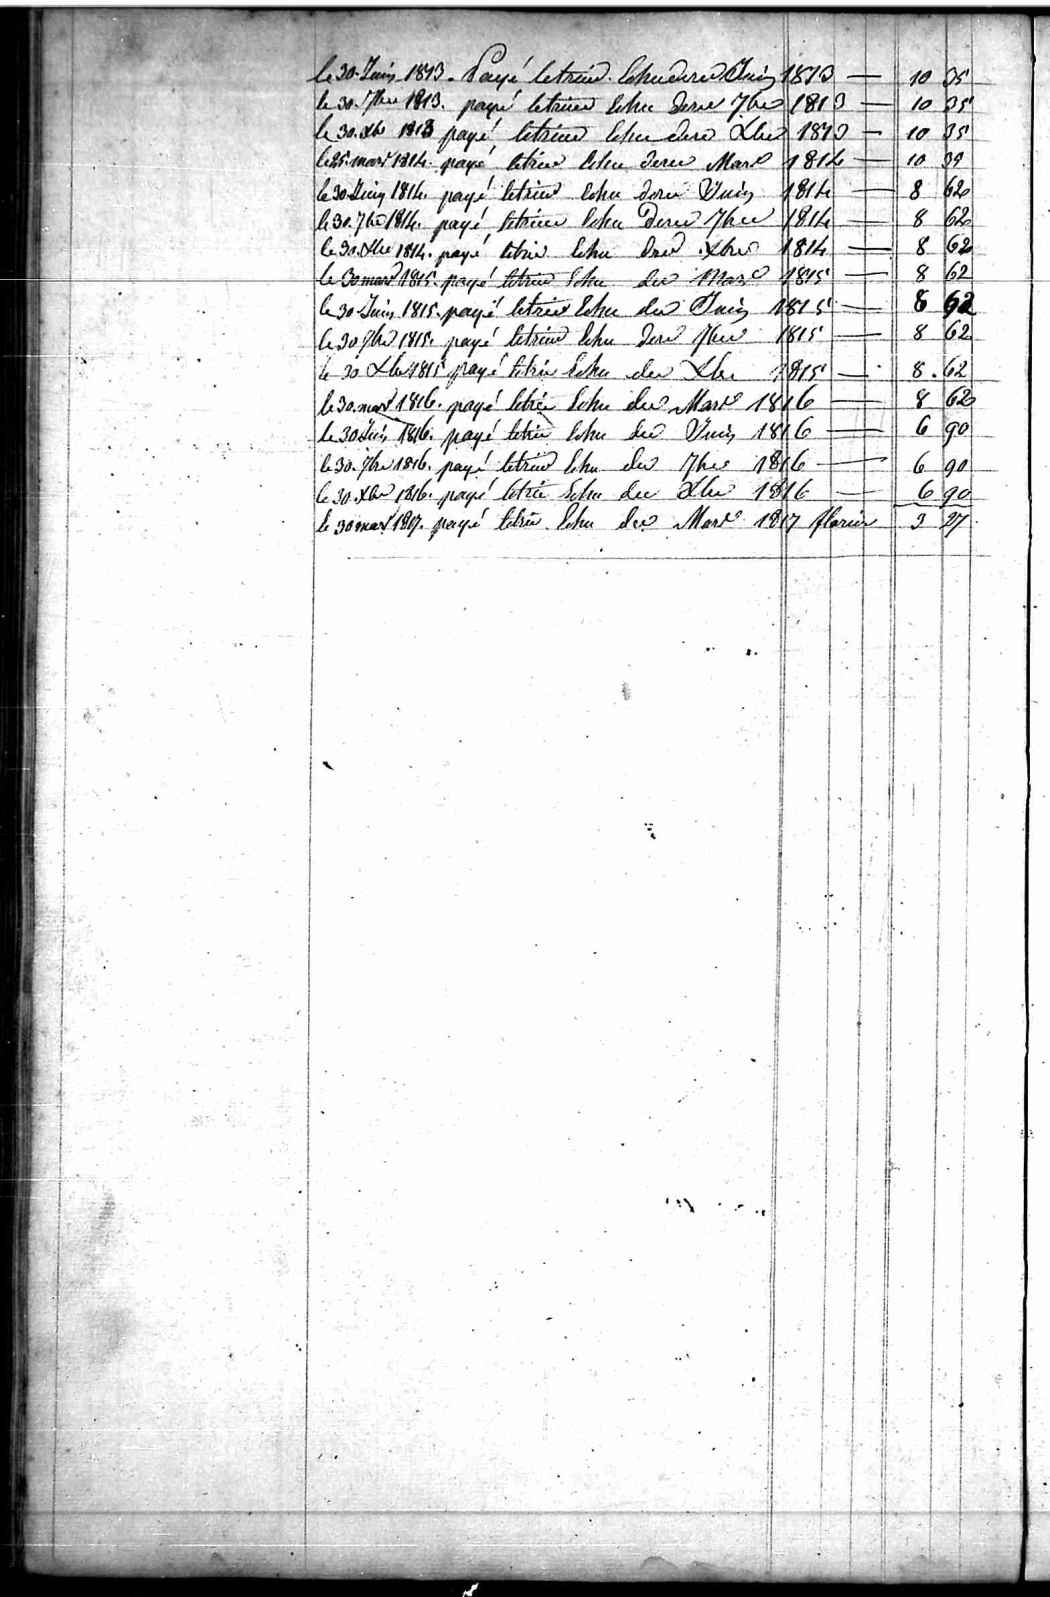 le 30 Juin 1813. Payé le trim. Echu dere Juin 1813 — 10 35
le 30. 7bre 1813. payé le trim Echu dere 7bre 1813 — 10 35
le 30. Xbr 1813 payé le trim Echu dere Xbre 1813 — 10 35
le 25. mars 1814. payé le trim Echu dere Mars 1814 — 10 35
le 30 Juin 1814. payé le trim Echu dere Juin 1814 — 8 62
le 30. 7bre 1814. payé le trim Echu dere 7bre 1814 — 8 62
le 30. Xbre 1814. payé le trim Echu dere Xbre 1814 — 8 62
le 30 mars 1815. payé le trim Echu de Mars 1815 — 8 62
le 30 Juin 1815. payé le trim Echu de Juin 1815 — 8 62
le 30 7bre 1815. payé le trim Echu dere 7bre 1815 — 8 62
le 30 Xbr 1815 payé le trim Echu de Xbre 1815 — 8. 62
le 30. mars 1816. payé le trim Echu de Mars 1816 — 8 62
le 30 Juin 1816. payé le trim Echu de Juin 1816 — 6 90
le 30. 7bre 1816. payé le trim Echu de 7bre 1816 — 6 90
le 30. Xbre 1816. payé le trim Echu de Xbre 1816 — 6 90
le 30 mars 1817. payé le trim Echu de Mars 1817 florins 3 27